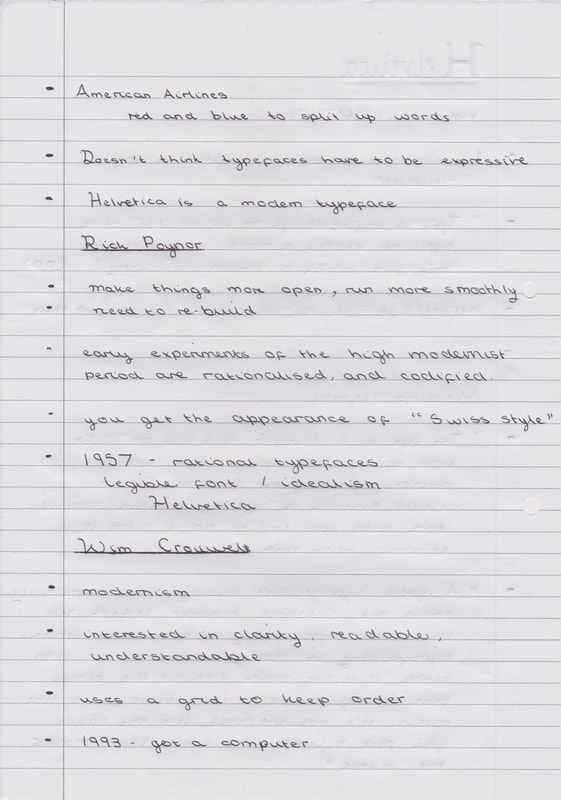 American Airlines
red and blue to split up words
Doesn't think typefaces have to be expressive
Helvetica is a modern typeface
Rick Poynor
make things more open, run more smoothly
need to re-build
early experiments of the high modernist
period are rationalised, and codified.
you get the appearance of "Swiss style"
1957 - rational typefaces
legible font / idealism
Helvetica
Wim Crouwel
modernism
interested in clarity, readable,
understandable
uses a grid to keep order
1993 - got a computer